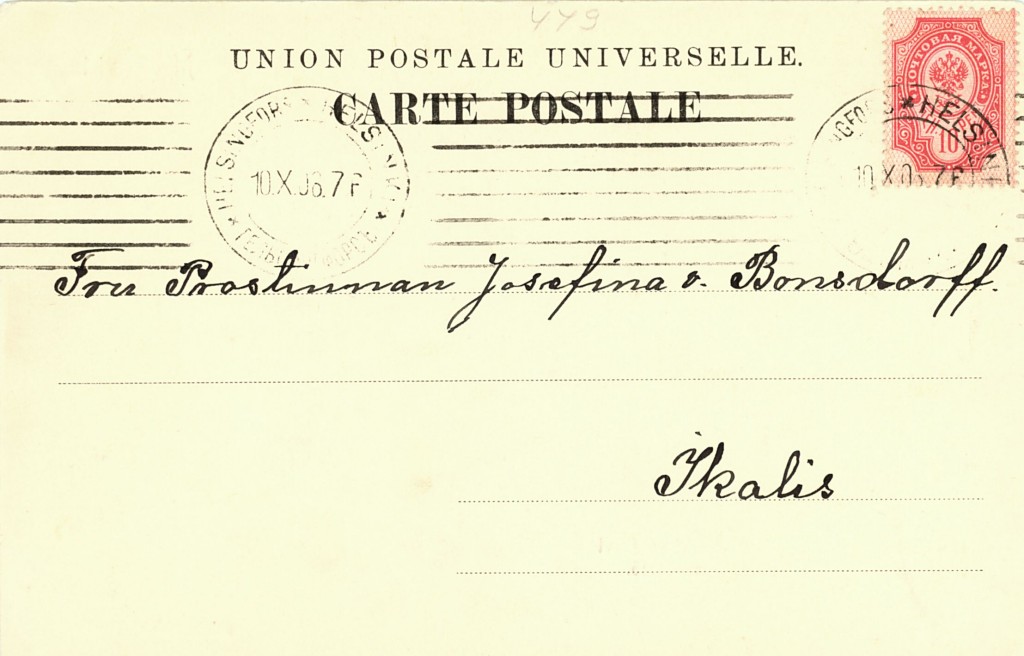 479
UNION POSTALE UNIVERSELLE.
CARTE POSTALE
ПОЧТОВАЯ МАРКА
10
HELSINGFORS ★ HELSINKI ★
10.X.06.7
NGFORS ★ HELSINKI
10.X.06.7
Fru Prostinnan Josefina v. Bonsdorff.
Ikalis